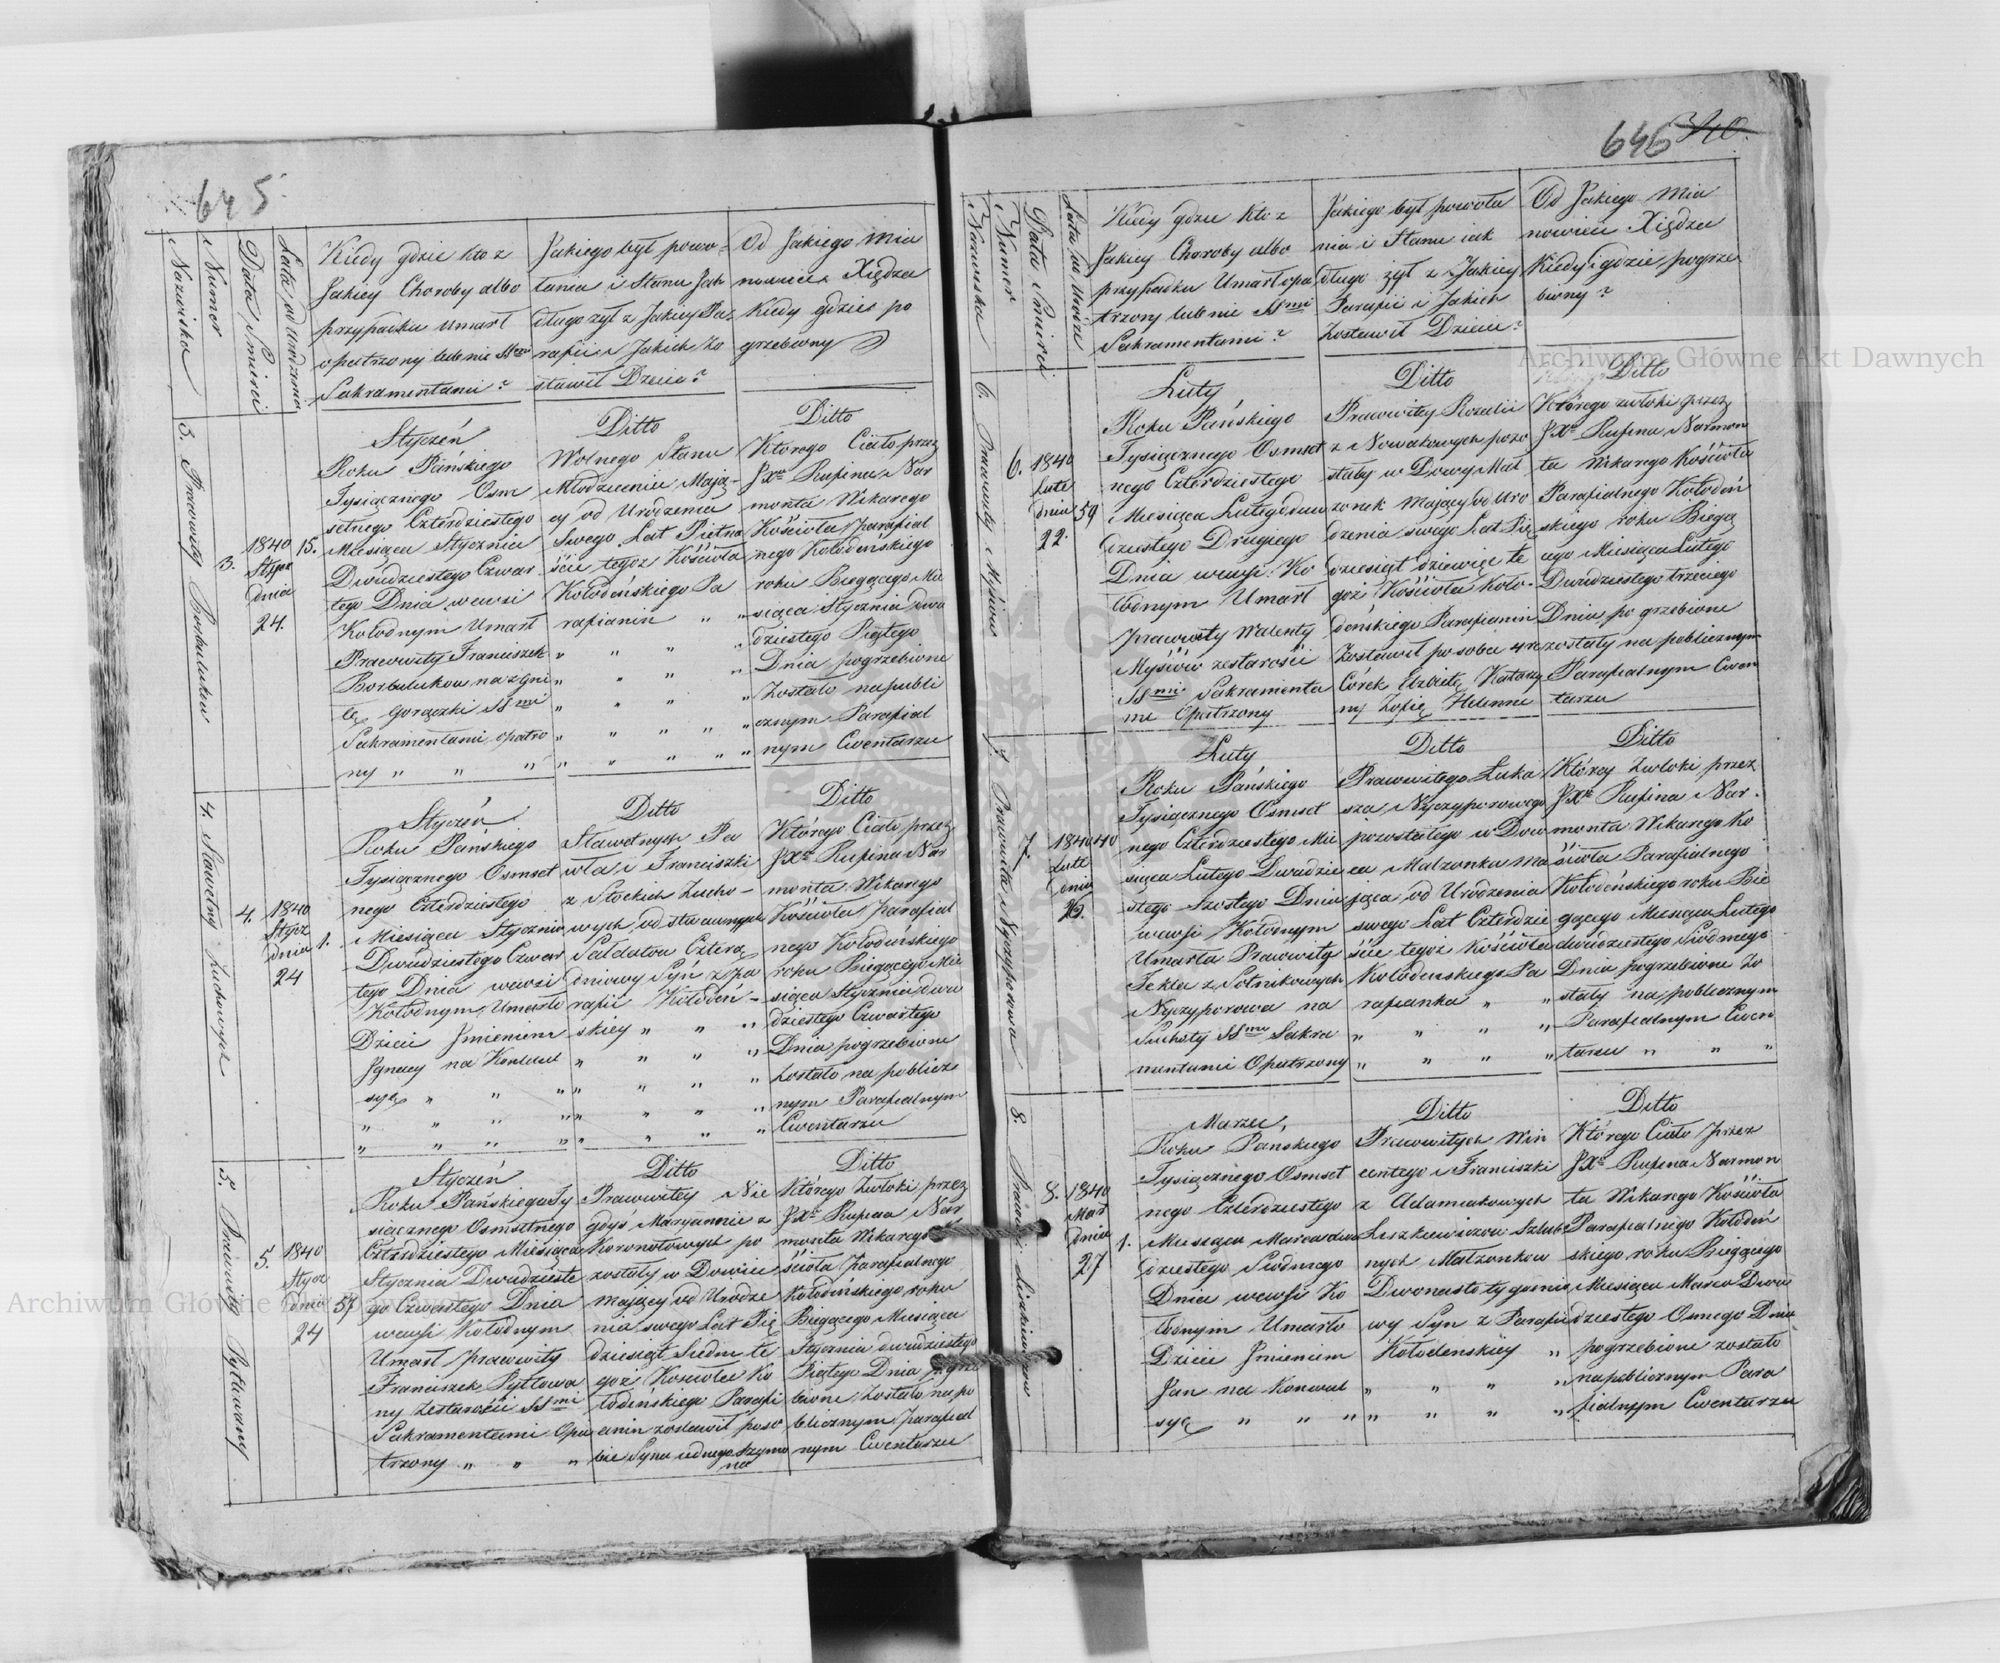 645.
Nazwiska
Numer
Data Smierci
Lata od Urodzenia
Kiedy gdzie kto z
Jakiey Choroby albo
przypadku umarł
opatrzony lub nie SSmi
Sakramentami?
Jakiego był powo-
łania i Stanu Jak
długo żył z Jakiey Pa-
rafii i Jakich Zo
stawił Dzieci?
Od Jakiego mia
nowicie Xiędza
Kiedy gdzie po
grzebiony
3. Pracowity Borbulukow
3.
1840
Stycz
dnia
24.
15.
Styczeń
Roku Pańskiego
Tysiącznego Osm
setnego Czterdziestego
Miesiąca Stycznia
Dwudziestego Czwar
tego Dnia wewsi
Kołodnym Umarł
Pracowity Franciszek
Borbulukow na zgni
łę Gorączki SSmi
Sakramentami opatrzo
ny „ „ „
Ditto
Wolnego Stanu
Młodzieniec Mają-
cy od Urodzenia
Swego Lat Piętna
ście tegoż Kościoła
Kołodeńskiego Pa
rafianin „ „
Ditto
Którego Ciało przez
JXa Rufina Nar
monta Wikarego
Kościoła parafial
nego Kołodeńskiego
roku Biegącego Mie
siąca Stycznia dwu
dziestego Piątego
Dnia pogrzebione
Zostało na publi
cznym Parafial
nym Cwentarzu
4. Sławetny Zuchowych
4.
1840
Stycz
dnia
24
1.
Styczeń
Roku Pańskiego
Tysiącznego Osmset
nego Czterdziestego
Miesiąca Stycznia
Dwudziestego Czwar
tego Dnia wewsi
Kołodnym Umarło
Dziecie Jmieniem
Jgnacy na Konwul
syę „ „ „
Ditto
Sławetnych Pa
wła i Franciszki
z Stockich Zucho-
wych, odstawnych
Sałdatow Cztera
dniowy Syn z pa
rafii Kołodeń-
skiey „ „ „
Ditto
Którego Ciało przez
JXa Rufina Nar
monta Wikarego
Kościoła parafial
nego Kołodeńskiego
roku Biegącego Mie
siąca Stycznia dwu
dziestego Czwartego
Dnia pogrzebione
Zostało na publicz
nym Parafialnym
Cwentarzu
5. Pracowity Pytlowany
5.
1840
Stycz
dnia
24
57
Styczeń
Roku Pańskiego Ty
siącznego Osmsetnego
Czterdziestego Miesiąca
Stycznia Dwudzieste
go Czwartego Dnia
wewsi Kołodnym
Umarł pracowity
Franciszek Pytlowa
ny zestarości SSmi
Sakramentami Opa
trzony „ „ „
Ditto
Pracowitey Nie
gdyś Maryannie z
Koronotowych po
zostały w Dowiec
Mający od Urodze
nia swego Lat Pię
dziesiąt Siedm te
goż Kościoła Ko
łodeńskiego Parafi
anin zostawił poso
bie Syna iednego Szymo
na
Ditto
Którego Zwłoki przez
JXa Rufina Nar
monta Wikarego Ko
ścioła parafialnego
Kołodeńskiego roku
Biegącego Miesiąca
Stycznia dwudziestego
Piątego Dnia pogrze
bione Zostało na pu
blicznym parafial
nym Cwentarzu
646 340.
Nazwiska
Numer
Data Smierci
Lata od Urodze
Kiedy gdzie kto z
Jakiey Choroby albo
przypadku Umarł opa
trzony lub nie SSmi
Sakramentami?
Jakiego był powoła
nia i Stanu iak
długo żył z Jakiey
Parafii i Jakich
Zostawił Dzieci?
Od Jakiego Mia
nowicie Xiędza
Kiedy i gdzie pogrze
biony?
6. Pracowity Mysiów
6.
1840
Lute
dnia
22.
59
Luty
Roku Pańskiego
Tysiącznego Osmset
nego Czterdziestego
Miesiąca Lutego dwu
dziestego Drugiego
Dnia wewsi Ko
łodnym Umarł
Pracowity Walenty
Mysiów zestarości
SSmi Sakramenta
mi Opatrzony
Ditto
Pracowitey Rozalii
z Nowakowych pozo
stały w Dowy Mał
zonek Mający od Uro
dzenia swego Lat Pię
dziesiąt dziewięć te
goż Kościoła Koło-
deńskiego Parafianin
Zostawił po sobie 4re
Córek Elżbietę Katarzy
ny Zofię Helenne
Ditto
Którego zwłoki przez
JXa Rufina Narmon
ta Wikarego Kościoła
Parafialnego Kołodeń
skiego roku Biegą
cego Miesiąca Lutego
Dwudziestego trzeciego
Dnia pogrzebione
zostały na publicznym
Parafialnym Cwen
tarzu
7. Pracowita Nyczyporowa
7
1840
Lute
dnia
26.
40
Luty
Roku Pańskiego
Tysiącznego Osmset
nego Czterdziestego Mie
siąca Lutego Dwudzie
stego Szostego Dnia
wewsi Kołodnym
Umarła Pracowita
Tekla z Sotnikowych
Nyczyporowa na
Suchoty SSmi Sakra
mentami Opatrzony
Ditto
Pracowitego Łuka
sza Nyczyporowego
pozostałego w Dow
ca Małzonka Ma
jąca od Urodzenia
swego Lat Czterdzie
ście tegoż Kościoła
Kołodenskiego Pa
rafianka „ „
Ditto
Którey Zwłoki przez
JXa Rufina Nar-
monta Wikarego Ko
ścioła Parafialnego
Kołodeńskiego roku Bie
gącego Miesiąca Lutego
dwudziestego Siodmego
Dnia pogrzebione Zo
stały na publicznym
Parafialnym Cwen
tarzu „ „ „
8.
8.
1840
Mar
dnia
27
1.
Marzec,
Roku Pańskiego
Tysiącznego Osmset
nego Czterdziestego
Miesiąca Marca dwu
dziestego Siodmego
Dnia wewsi Ko
łodnym Umarło
Dziecie Jmieniem
Jan na Konwul
syę „ „ „
Ditto
Pracowitych Win
centego i Franciszki
z Adamiakowych
Leszkiewiczow Szlub
nych Małzonkow
Dwonasto tygodnio
wy Syn z Parafii
Kołodenskiey „
Ditto
Którego Ciało przez
JXa Rufina Narmon
ta Wikarego Kościoła
Parafialnego Kołodeń
skiego roku Biegącego
Miesiąca Marca Dwu
dziestego Osmego Dnia
pogrzebione zostało
na publicznym Para
fialnym Cwentarzu
Archiwum Główne Akt Dawnych
Archiwum Główne Akt Dawnych